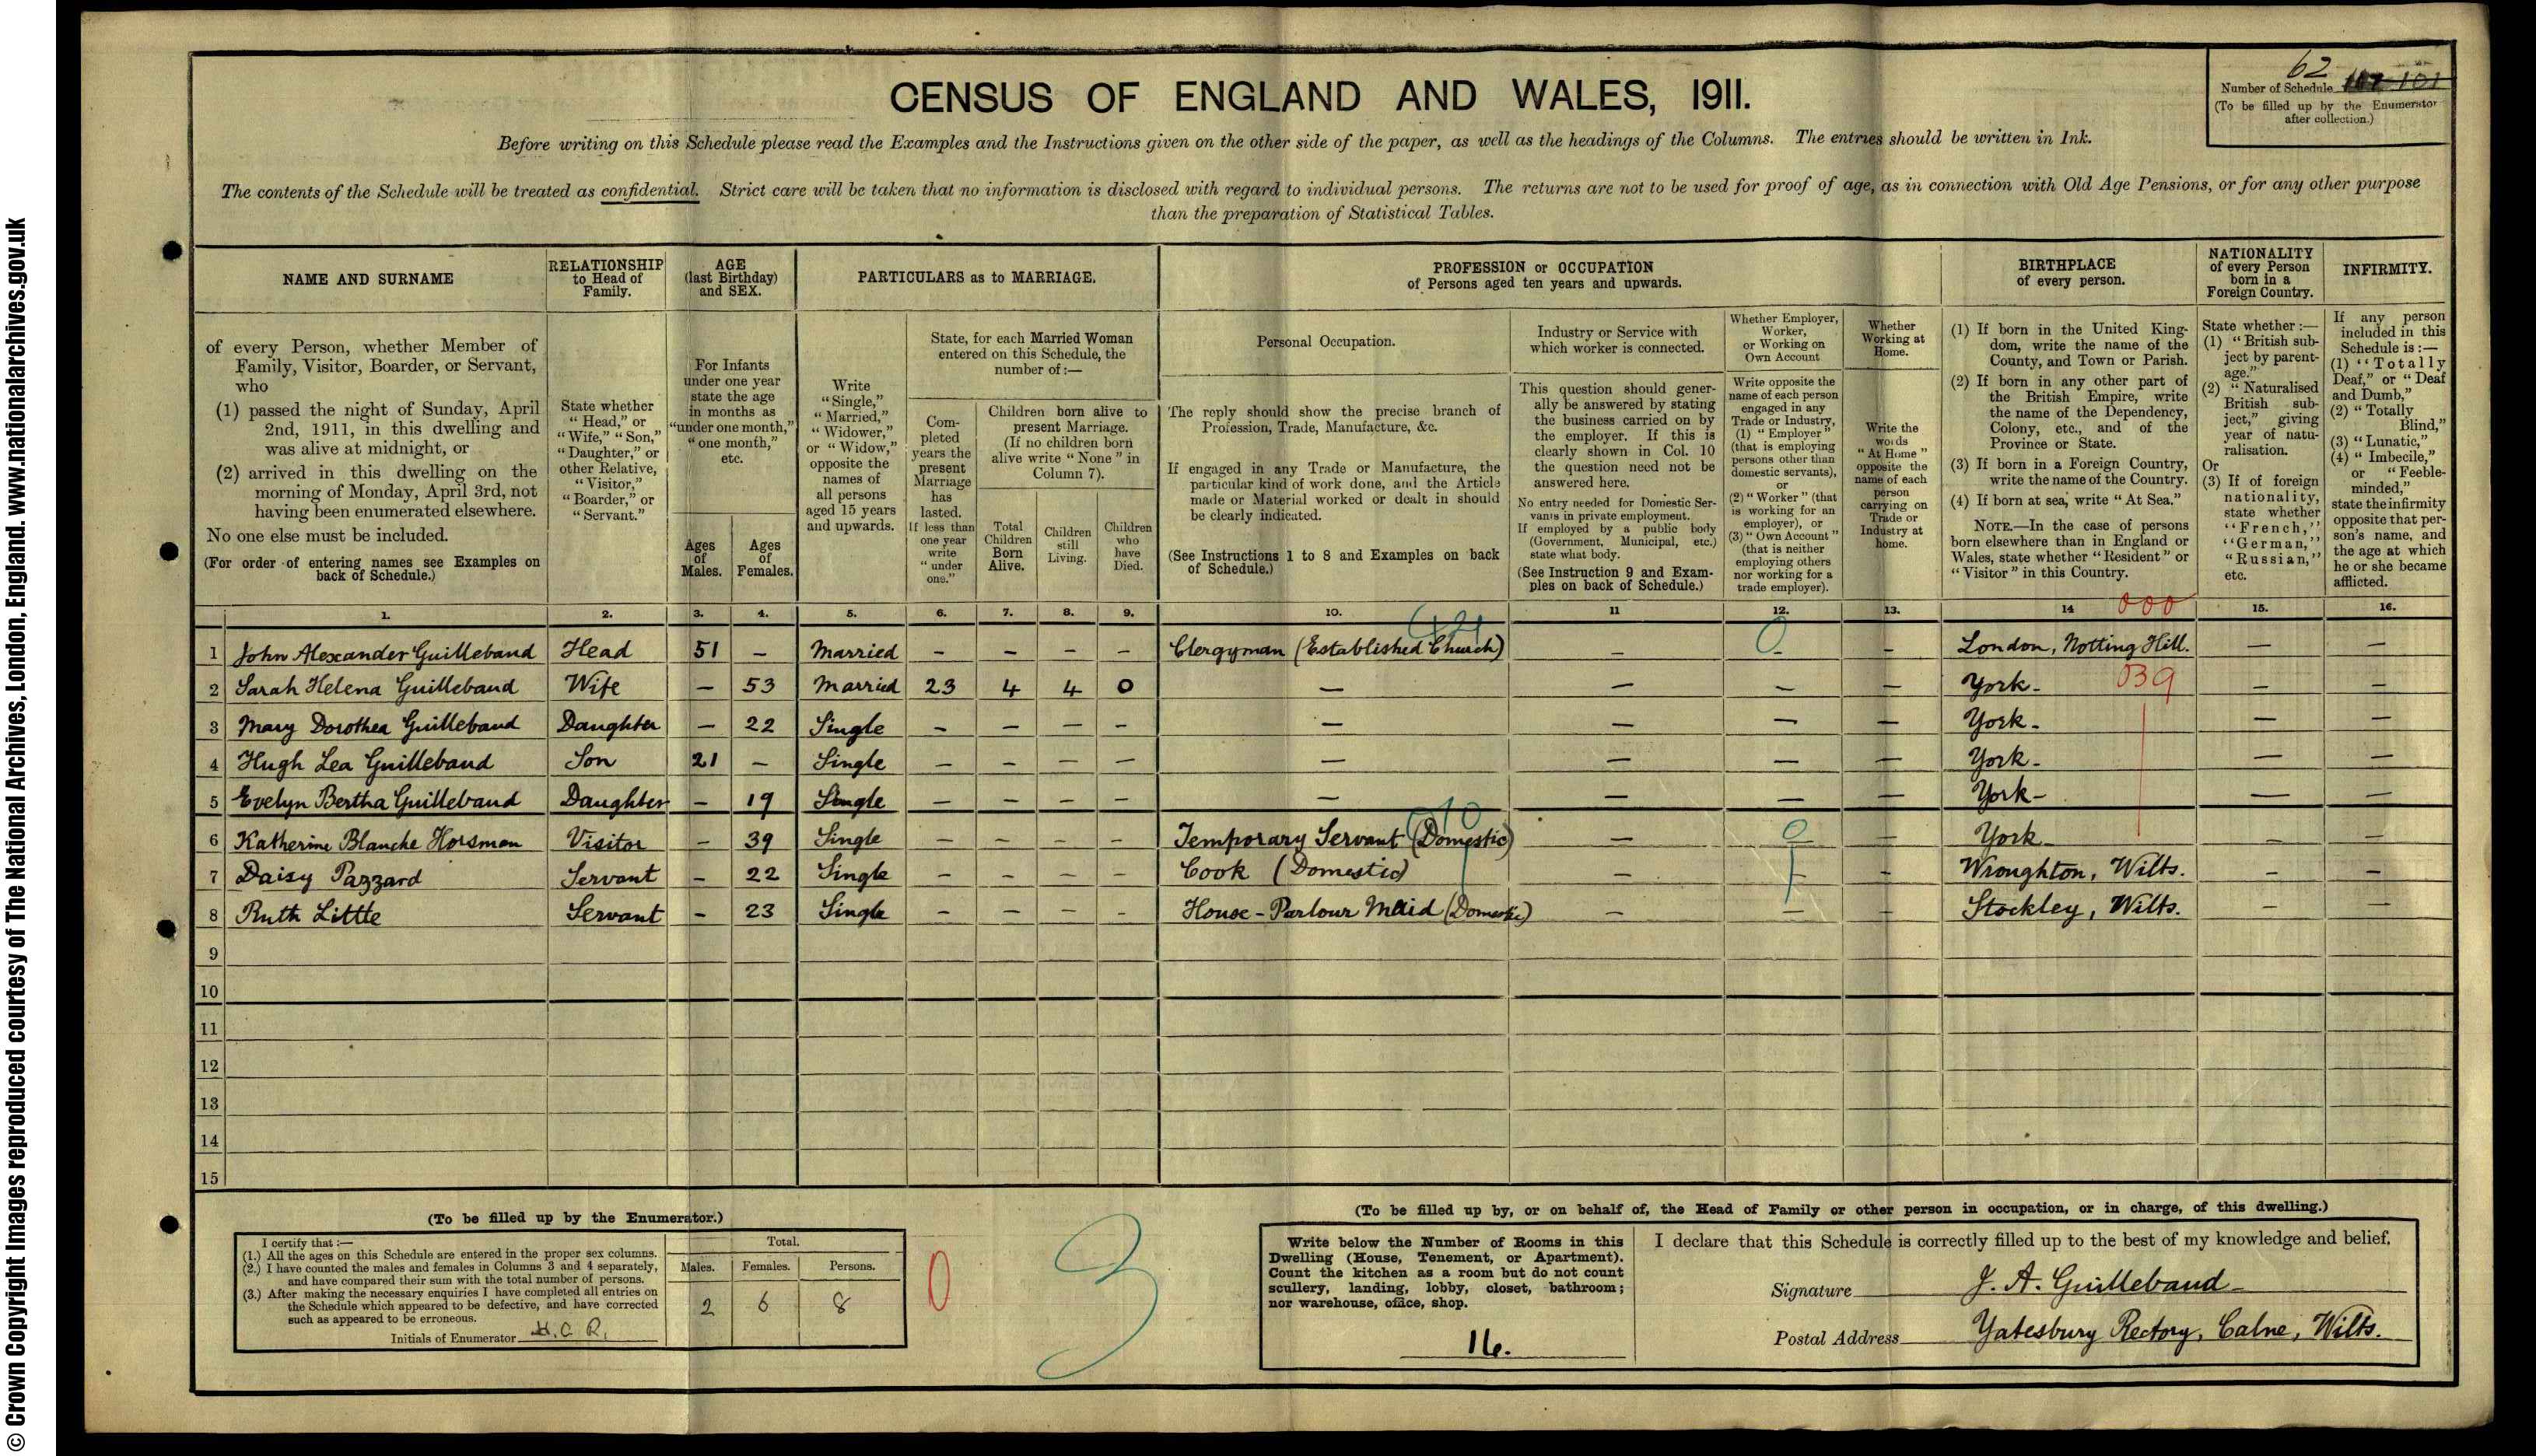 © Crown Copyright Images reproduced courtesy of The National Archives, London, England. www.nationalarchives.gov.uk
CENSUS OF ENGLAND AND WALES, 1911.
62
Number of Schedule 101
(To be filled up by the Enumerator
after collection.)
Before writing on this Schedule please read the Examples and the Instructions given on the other side of the paper, as well as the headings of the Columns. The entries should be written in Ink.
The contents of the Schedule will be treated as confidential. Strict care will be taken that no information is disclosed with regard to individual persons. The returns are not to be used for proof of age, as in connection with Old Age Pensions, or for any other purpose
than the preparation of Statistical Tables.
NAME AND SURNAME
of every Person, whether Member of
Family, Visitor, Boarder, or Servant,
who
(1) passed the night of Sunday, April
2nd, 1911, in this dwelling and
was alive at midnight, or
(2) arrived in this dwelling on the
morning of Monday, April 3rd, not
having been enumerated elsewhere.
No one else must be included.
(For order of entering names see Examples on
back of Schedule.)
RELATIONSHIP
to Head of
Family.
State whether
"Head," or
"Wife," "Son,"
"Daughter," or
other Relative,
"Visitor,"
"Boarder," or
"Servant."
AGE
(last Birthday)
and SEX.
For Infants
under one year
state the age
in months as
"under one month,"
"one month,"
etc.
Ages
of
Males.
Ages
of
Females.
PARTICULARS as to MARRIAGE.
Write
"Single,"
"Married,"
"Widower,"
or "Widow,"
opposite the
names of
all persons
aged 15 years
and upwards.
State, for each Married Woman
entered on this Schedule, the
number of:—
Com-
pleted
years the
present
Marriage
has
lasted.
If less than
one year
write
"under
one."
Children born alive to
present Marriage.
(If no children born
alive write "None" in
Column 7).
Total
Children
Born
Alive.
Children
still
Living.
Children
who
have
Died.
PROFESSION or OCCUPATION
of Persons aged ten years and upwards.
Personal Occupation.
The reply should show the precise branch of
Profession, Trade, Manufacture, &c.
If engaged in any Trade or Manufacture, the
particular kind of work done, and the Article
made or Material worked or dealt in should
be clearly indicated.
(See Instructions 1 to 8 and Examples on back
of Schedule.)
Industry or Service with
which worker is connected.
This question should gener-
ally be answered by stating
the business carried on by
the employer. If this is
clearly shown in Col. 10
the question need not be
answered here.
No entry needed for Domestic Ser-
vants in private employment.
If employed by a public body
(Government, Municipal, etc.)
state what body.
(See Instruction 9 and Exam-
ples on back of Schedule.)
Whether Employer,
Worker,
or Working on
Own Account
Write opposite the
name of each person
engaged in any
Trade or Industry,
(1) "Employer"
(that is employing
persons other than
domestic servants),
or
(2) "Worker" (that
is working for an
employer), or
(3) "Own Account"
(that is neither
employing others
nor working for a
trade employer).
Whether
Working at
Home.
Write the
words
"At Home"
opposite the
name of each
person
carrying on
Trade or
Industry at
home.
BIRTHPLACE
of every person.
(1) If born in the United King-
dom, write the name of the
County, and Town or Parish.
(2) If born in any other part of
the British Empire, write
the name of the Dependency,
Colony, etc., and of the
Province or State.
(3) If born in a Foreign Country,
write the name of the Country.
(4) If born at sea, write "At Sea."
NOTE.—In the case of persons
born elsewhere than in England or
Wales, state whether "Resident" or
"Visitor" in this Country.
NATIONALITY
of every Person
born in a
Foreign Country.
State whether:—
(1) "British sub-
ject by parent-
age."
(2) "Naturalised
British sub-
ject," giving
year of natu-
ralisation.
Or
(3) If of foreign
nationality,
state whether
"French,"
"German,"
"Russian,"
etc.
INFIRMITY.
If any person
included in this
Schedule is:—
(1) "Totally
Deaf," or "Deaf
and Dumb,"
(2) "Totally
Blind,"
(3) "Lunatic,"
(4) "Imbecile,"
or "Feeble-
minded,"
state the infirmity
opposite that per-
son's name, and
the age at which
he or she became
afflicted.
1. 2. 3. 4. 5. 6. 7. 8. 9. 10. 11 12. 13. 14 000 15. 16.
1 John Alexander Guillebaud Head 51 – Married – – – – Clergyman (Established Church) – 0 – – London, Notting Hill. – –
2 Sarah Helena Guillebaud Wife – 53 Married 23 4 4 0 – – – – York - 039 – –
3 Mary Dorothea Guillebaud Daughter – 22 Single – – – – – – – – York - – –
4 Hugh Lea Guillebaud Son 21 – Single – – – – – – – – York - – –
5 Evelyn Bertha Guillebaud Daughter – 19 Single – – – – – – – – York - – –
6 Katherine Blanche Horsman Visitor – 39 Single – – – – Temporary Servant (Domestic) – 0 – York – –
7 Daisy Pazzard Servant – 22 Single – – – – Cook (Domestic) – – – Wroughton, Wilts. – –
8 Ruth Little Servant – 23 Single – – – – House-Parlour Maid (Domestic) – – – Stockley, Wilts. – –
9
10
11
12
13
14
15
(To be filled up by the Enumerator.)
I certify that:—
(1.) All the ages on this Schedule are entered in the proper sex columns.
(2.) I have counted the males and females in Columns 3 and 4 separately,
and have compared their sum with the total number of persons.
(3.) After making the necessary enquiries I have completed all entries on
the Schedule which appeared to be defective, and have corrected
such as appeared to be erroneous.
Initials of Enumerator H. C. R.
Total.
Males. Females. Persons.
2 6 8
0
3
(To be filled up by, or on behalf of, the Head of Family or other person in occupation, or in charge, of this dwelling.)
Write below the Number of Rooms in this
Dwelling (House, Tenement, or Apartment).
Count the kitchen as a room but do not count
scullery, landing, lobby, closet, bathroom;
nor warehouse, office, shop.
16.
I declare that this Schedule is correctly filled up to the best of my knowledge and belief.
Signature J. A. Guillebaud
Postal Address Yatesbury Rectory, Calne, Wilts.